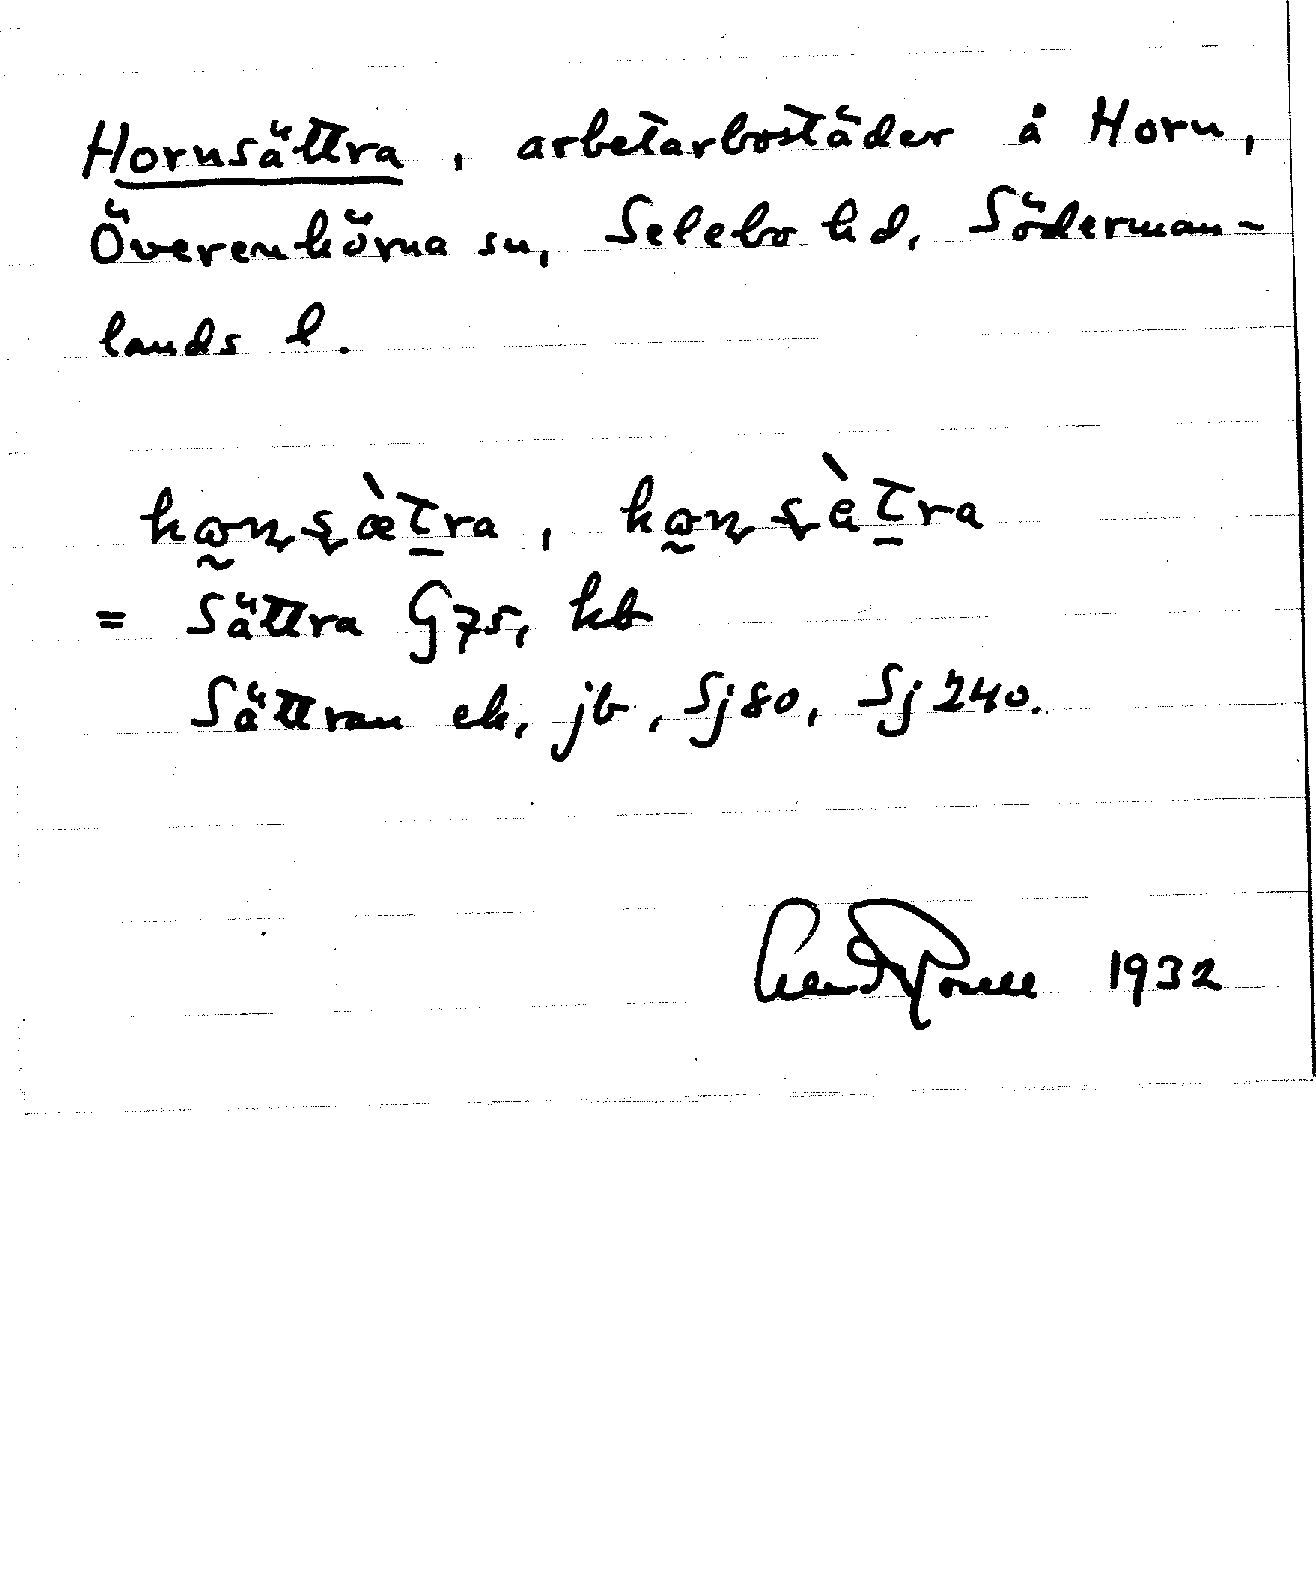 Hornsättra, arbetarbostäder å Horn,
Överenhörna sn, Selebo hd, Söderman-
lands l.
= Sättra G75, hb
Sättran ek, jb, Sj80, Sj240.
1932